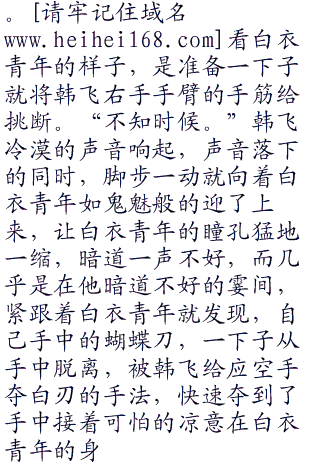 。[请牢记住域名
www.heihei168.com]看白衣
青年的样子，是准备一下子
就将韩飞右手手臂的手筋给
挑断。“不知时候。”韩飞
冷漠的声音响起，声音落下
的同时，脚步一动就向着白
衣青年如鬼魅般的迎了上
来，让白衣青年的瞳孔猛地
一缩，暗道一声不好，而几
乎是在他暗道不好的霎间，
紧跟着白衣青年就发现，自
己手中的蝴蝶刀，一下子从
手中脱离，被韩飞给应空手
夺白刃的手法，快速夺到了
手中接着可怕的凉意在白衣
青年的身